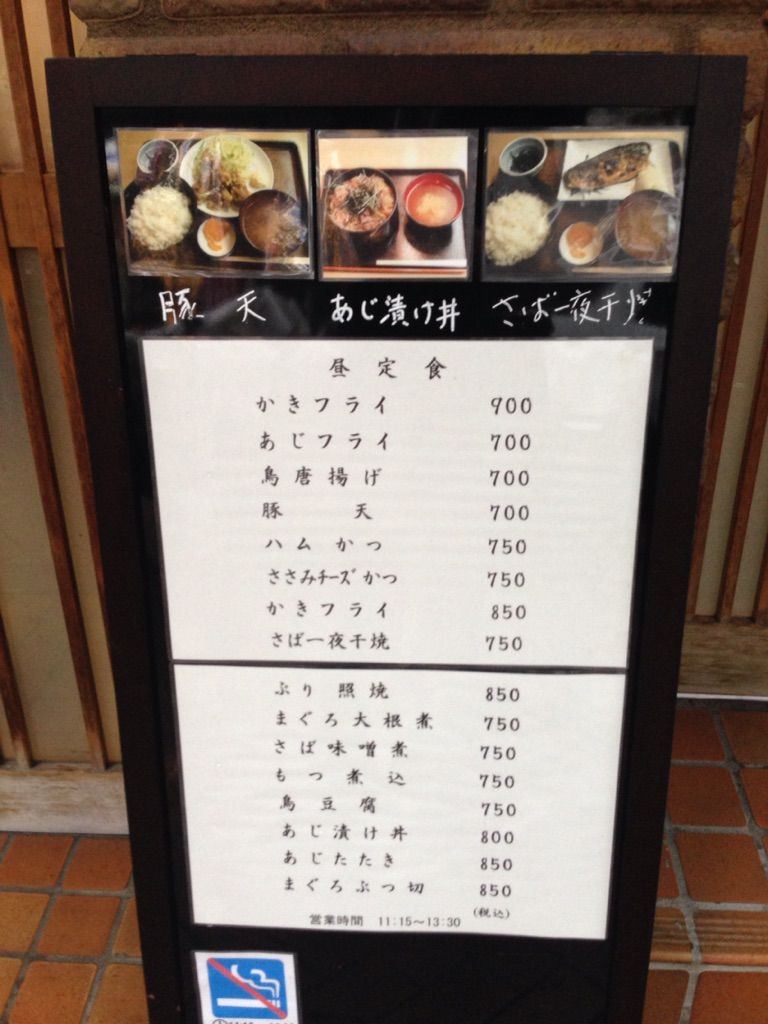 豚 天 あじ漬け丼 さば一夜干焼
昼定食
かきフライ 900
あじフライ 700
鳥唐揚げ 700
豚 天 700
ハムかつ 750
ささみチーズかつ 750
かきフライ 850
さば一夜干焼 750
ぶり照焼 850
まぐろ大根煮 750
さば味噌煮 750
もつ煮込 750
鳥豆腐 750
あじ漬け丼 800
あじたたき 850
まぐろぶつ切 850
(税込)
営業時間 11:15~13:30